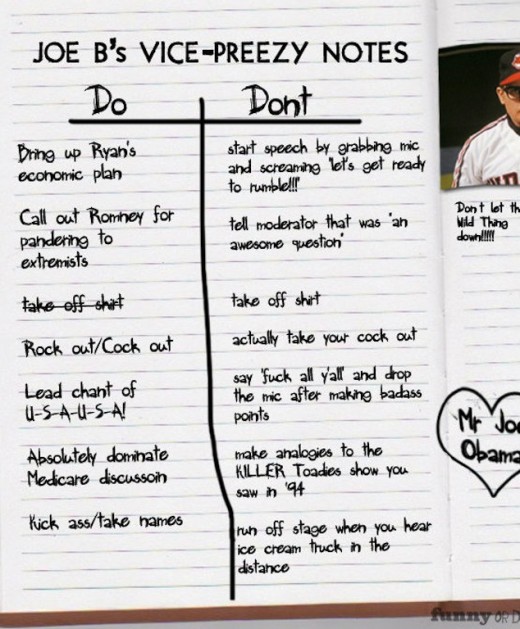 JOE B's VICE-PREEZY NOTES
Do
Bring up Ryan's
economic plan
Call out Romney for
pandering to
extremists
take off shirt
Rock out/Cock out
Lead chant of
U-S-A-U-S-A!
Absolutely dominate
Medicare discussoin
Kick ass/take names
Dont
start speech by grabbing mic
and screaming 'let's get ready
to rumble!!!'
tell moderator that was 'an
awesome question'
take off shirt
actually take your cock out
say 'fuck all y'all' and drop
the mic after making badass
points
make analogies to the
KILLER Toadies show you
saw in '94
run off stage when you hear
ice cream truck in the
distance
Don't let th
Wild Thing
down!!!!!
Mr Joe
Obama
funny OR D